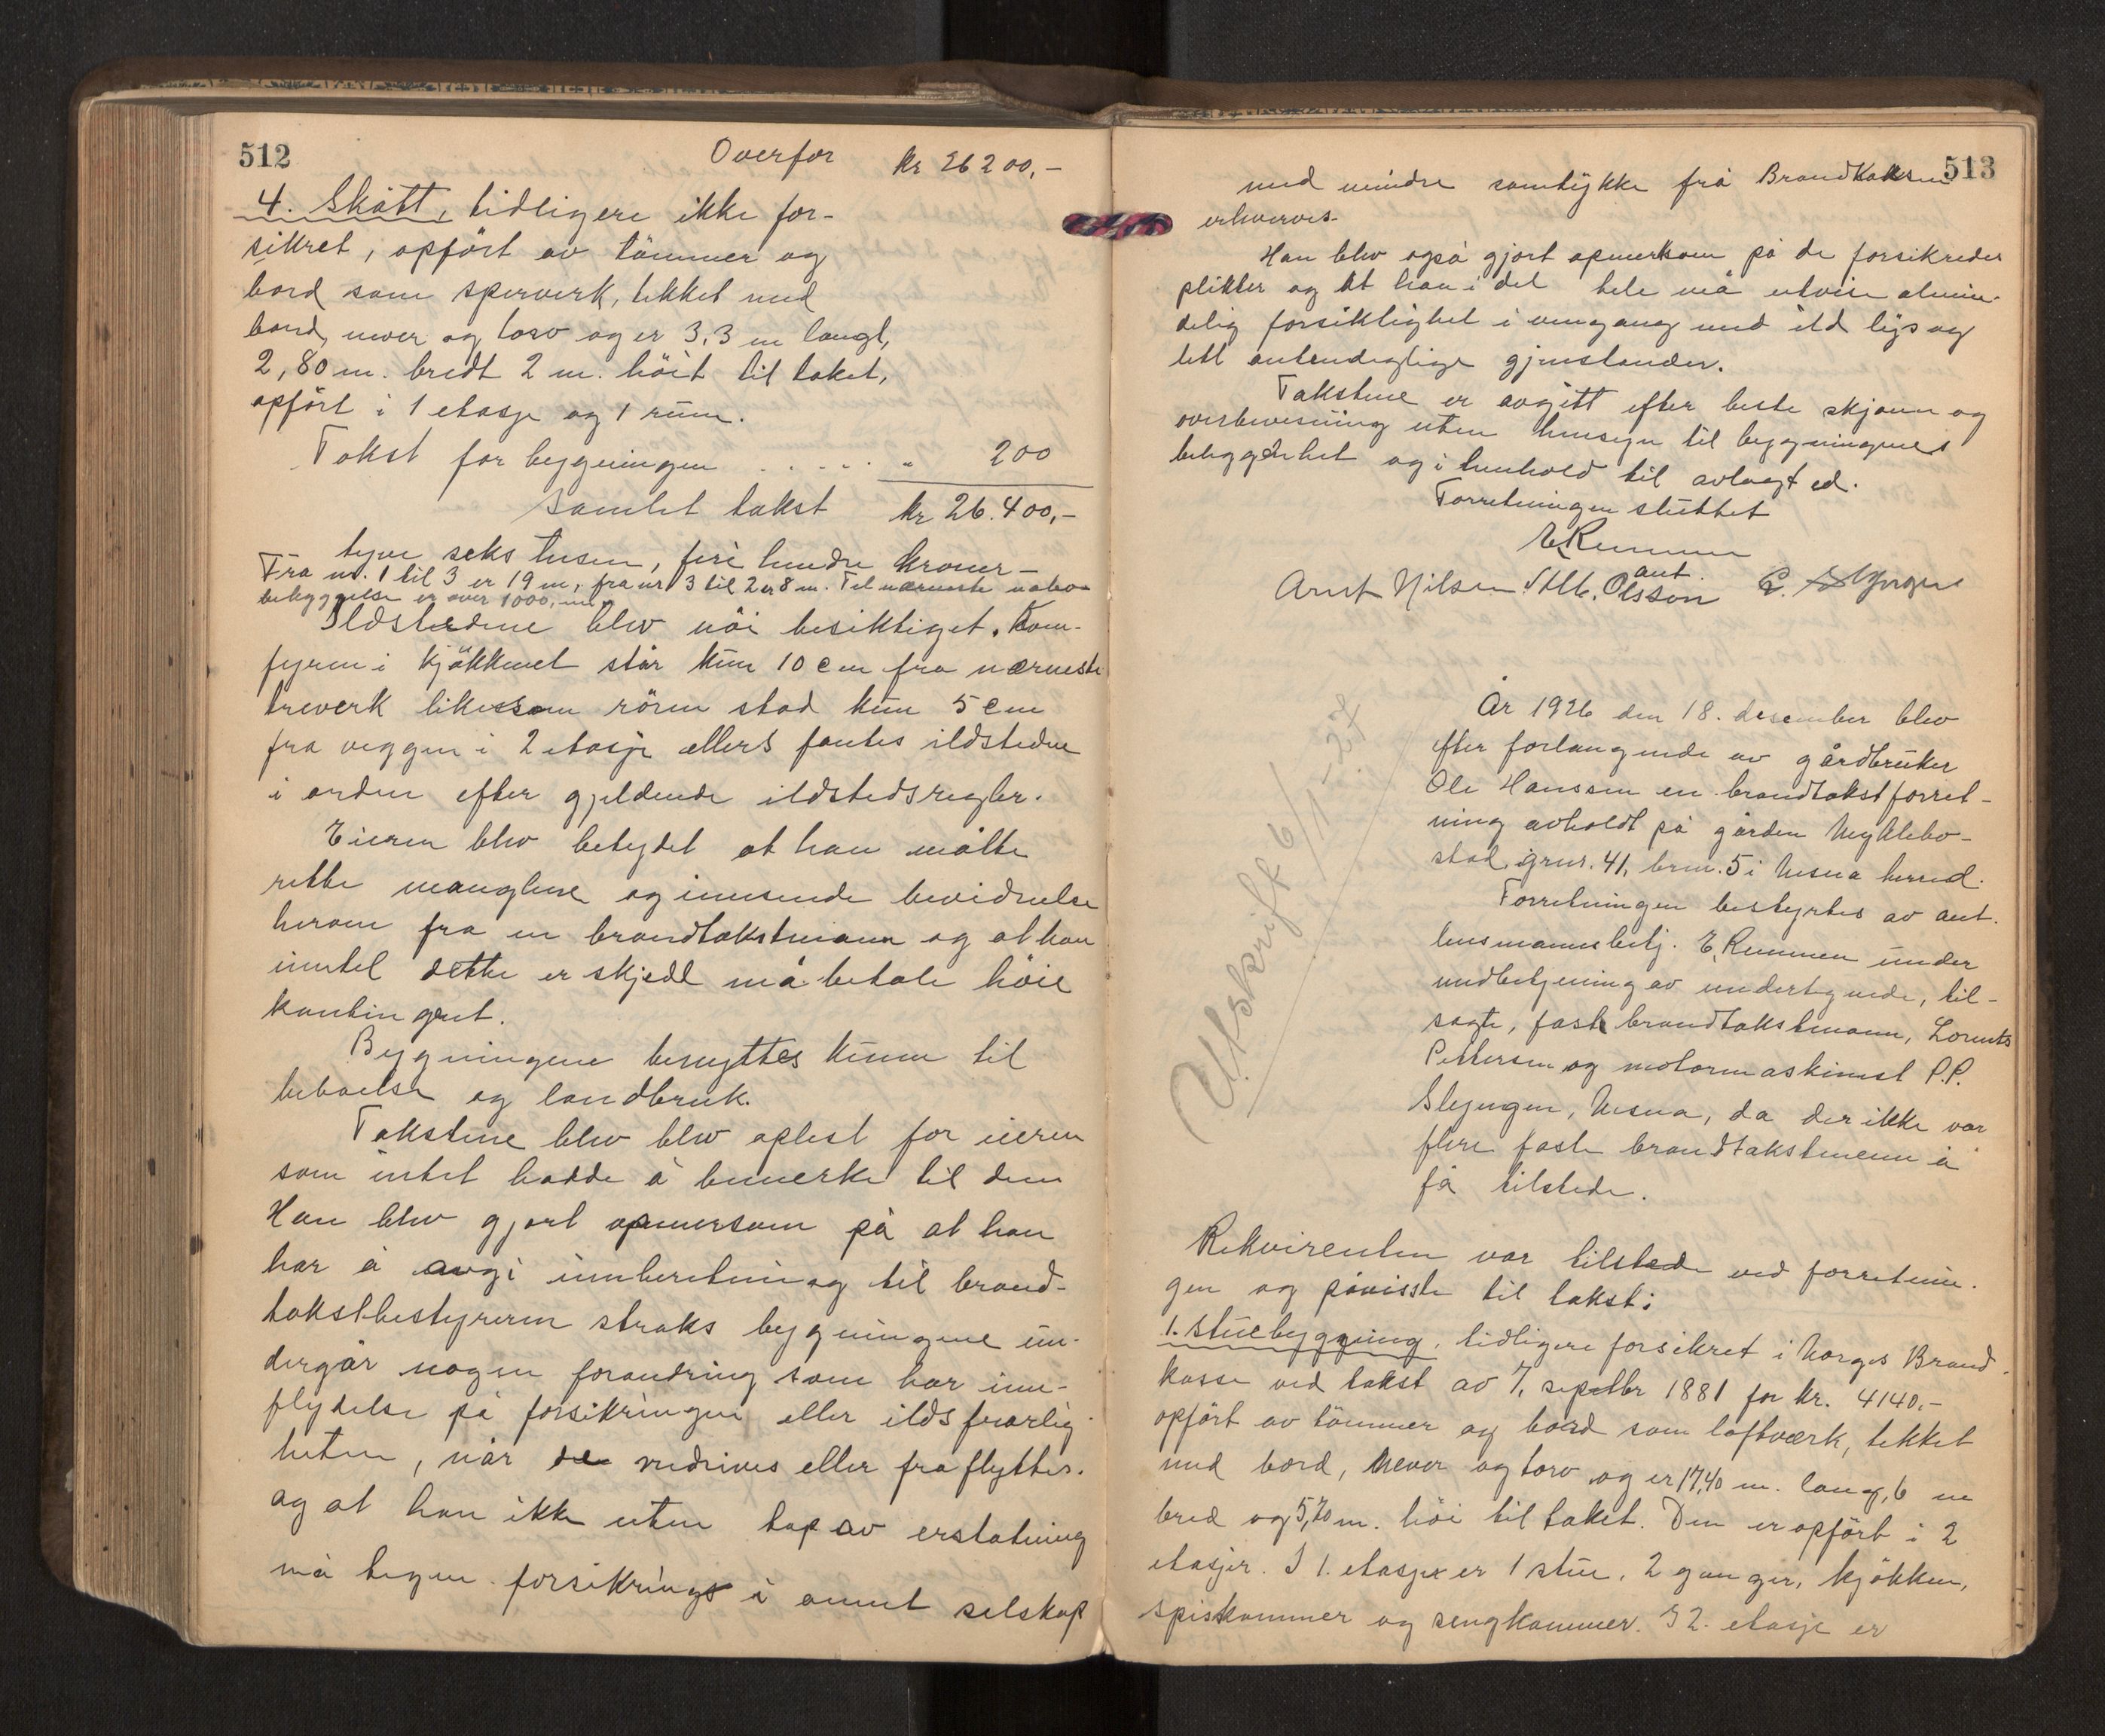 512
Overfør kr 26200,-
4. Skått, tidligere ikke for-
sikret, opført av tømmer og
bord som sperverk, tekket med
bord, never og torv og er 3,3 m langt,
2,80 m. bredt 2 m. höit til taket,
opført i 1 etasje og 1 rum.
Takst for bygningen . . . . . " 200
Samlet takst kr 26.400,-
tyve seks tusen, fire hundre kroner -
Fra nr. 1 til 3 er 19 m, fra nr 3 til 2 er 8 m. Til nærmeste nabo-
bebyggelse er over 1000,- m.
Ildstedene blev nöi besiktiget. Kom-
fyren i kjøkkenet står kun 10 cm fra nærmeste
treverk likesom rören stod kun 5 cm
fra veggen i 2 etasje ellers fantes ildstedne
i orden efter gjeldende ildstedsregler.
Eieren blev betydet at han måtte
rette manglene og innsende bevidnelse
herom fra en brandtakstmann og at han
inntil dette er skjedd må betale höie
kontingent.
Bygningene benyttes kunn til
beboelse og landbruk.
Takstene blev blev oplest for eieren
som intet hadde å bemerke til dem
Han blev gjort opmersom på at han
har å avgi innberetning til brand-
takstbestyreren straks bygningene un-
dergår nogen forandring som har inn-
flydelse på forsikringen eller ildsfarlig-
heten, når de nedrives eller fraflyttes.
og at han ikke uten tap av erstatning
må tegne forsikrings i annet selskap
513
med mindre samtykke frå Brandkassen
erhverves.
Han blev også gjort opmerksom på de forsikredes
plikter og at han i det hele må utvise almin-
delig forsiktighet i omgang med ild lys og
lett antendeglige gjenstander.
Takstene er avgitt efter beste skjønn og
overbevisning uten hensyn til bygningenes
beliggenhet og i henhold til avlagt ed.
Forretningen sluttet
E Remmen
aut.
Arnt Nilsen. Olsson
Utskrift 6/1-27
År 1926 den 18. desember blev
efter forlangende av gårdbruker
Ole Hanssen en brandtakstforret-
ning avholdt på gården Myklebo-
stad grnr. 41, brnr. 5 i Nesna herred.
Forretningen bestyrtes av aut.
lensmannsbetj. E. Remmen under
medbetjening av undertegnede, til-
sagte, faste brandtakstmann, Lorents
Pettersen og motormaskinist P.P.
Slegngen, Nesna, da der ikke var
flere faste brandtakstmenn å
få tilstede.
Rekvirenten var tilstede ved forretnin-
gen og påviste til takst:
1. Stuebygning, tidligere forsikret i Norges Brand-
kasse ved takst av 7, septbr 1881 for kr. 4140,-
opført av tømmer og bord som loftværk, tekket
med bord, never og torv og er 17,40 m. lang, 6 m
bred og 5,70 m. höi til taket. Den er opført i 2
etasjer. I 1. etasje er 1 stue, 2 ganger, kjøkken,
spiskammer og sengkammer. I 2. etasje er